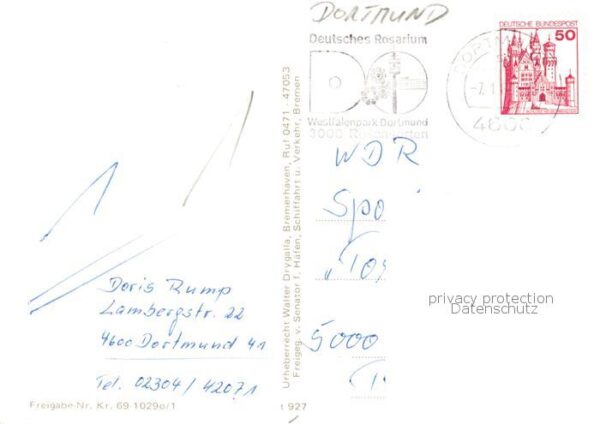 DORTMUND
DEUTSCHE BUNDESPOST
50
Deutsches Rosarium
DO
Westfalenpark Dortmund
3000 Rosenarten
DORTMUND
-7.1
4600
Urheberrecht Walter Drygalla, Bremerhaven, Ruf 0471 - 47053
Freigeg. v. Senator f. Häfen, Schiffahrt u. Verkehr, Bremen
WDR
Spo
5000
privacy protection
Datenschutz
Doris Rump
Lambergstr. 22
4600 Dortmund 41
Tel. 02304/42071
Freigabe-Nr. Kr. 69-1029o/1
927